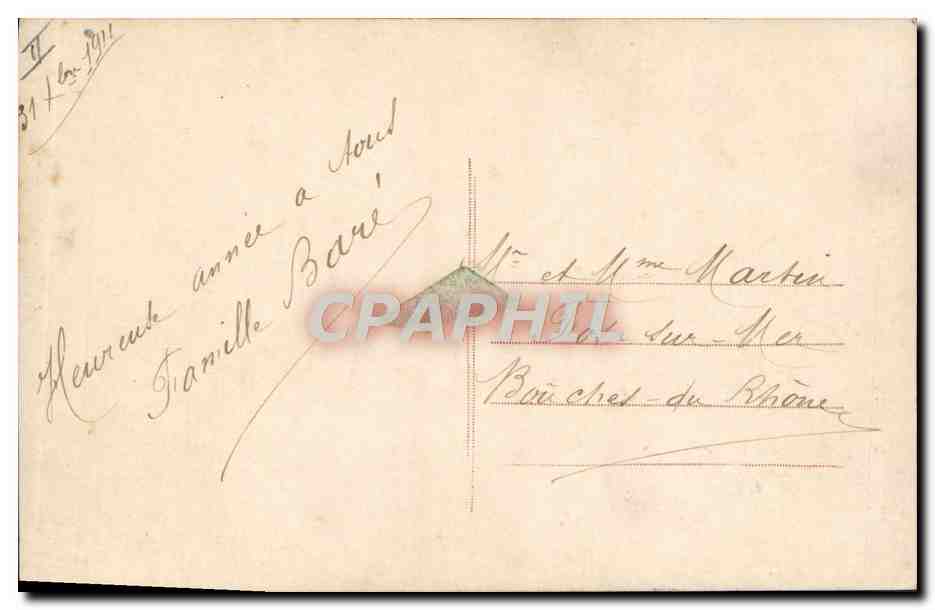 II
31 Xbre 1911
Heureuse année a tous
Famille Baré
Mr et Mme Martin
Fos sur-Mer
Bouches-du Rhône
CPAPHIL